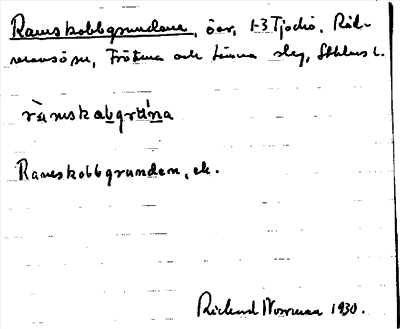 Ramskobbgrundena, öar, 1-3 Tjockö. Råd-
mansö sn, Frötuna och Länna slg, Sthlms l.
ràmskabgrún̄a
Ramskobbgrunden, ek.
Rickard Norrman 1930.